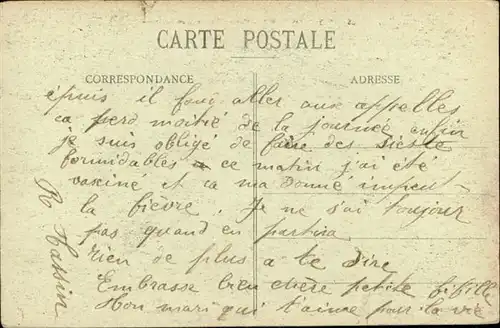 CARTE POSTALE
CORRESPONDANCE
ADRESSE
épuis il fauq aller aux appelles
ca perd moitié de la journée enfin
je suis obligé de faire des sieste
formidables ce matin j'ai été
vasciné et ca ma donné un peut
la fièvre. Je ne s'ai toujour
pas quand en partira
Rien de plus a te dire
Embrasse bien chère petite fifille
Ton mari qui t'aime pour la vie
R Hassin